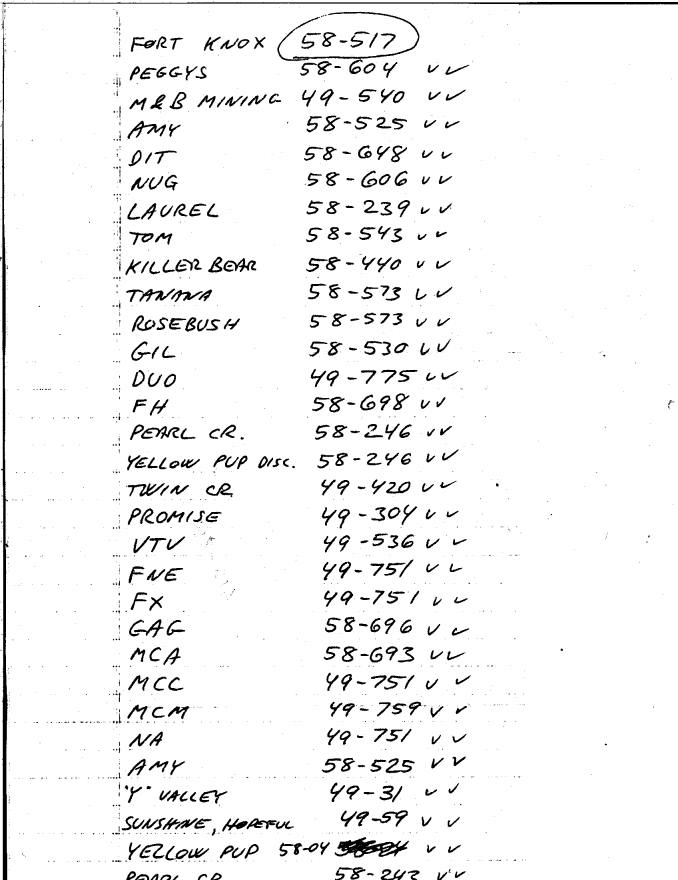 FORT KNOX 58-517
PEGGYS 58-604 ✓✓
M&B MINING 49-540 ✓✓
AMY 58-525 ✓✓
DIT 58-648 ✓✓
NUG 58-606 ✓✓
LAUREL 58-239 ✓✓
TOM 58-543 ✓✓
KILLER BEAR 58-440 ✓✓
TANANA 58-573 ✓✓
ROSEBUSH 58-573 ✓✓
GIL 58-530 ✓✓
DUO 49-775 ✓✓
FH 58-698 ✓✓
PEARL CR. 58-246 ✓✓
YELLOW PUP DISC. 58-246 ✓✓
TWIN CR 49-420 ✓✓
PROMISE 49-304 ✓✓
VTV 49-536 ✓✓
FNE 49-751 ✓✓
FX 49-751 ✓✓
GAG 58-696 ✓✓
MCA 58-693 ✓✓
MCC 49-751 ✓✓
MCM 49-759 ✓✓
NA 49-751 ✓✓
AMY 58-525 ✓✓
"Y" VALLEY 49-31 ✓✓
SUNSHINE, HOPEFUL 49-59 ✓✓
YELLOW PUP 58-04 ✓✓
PEARL CR 58-243 ✓✓